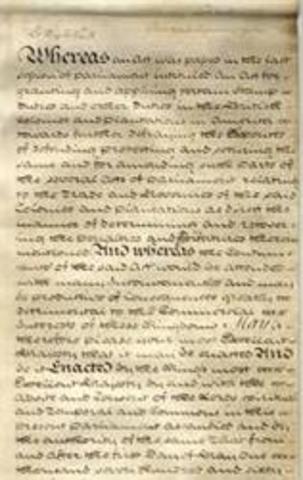 Whereas an Act was passed in the last
Session of Parliament intituled an Act for
granting and applying certain Stamp
Duties and other Duties in the British
Colonies and Plantations in America
towards further defraying the Expences
of defending protecting and securing the
same and for amending such parts of
the several Acts of Parliament relating
to the Trade and Revenues of the said
Colonies and Plantations as direct the
manner of determining and recover
ing the Penalties and Forfeitures therein
mentioned And whereas the Continu
ance of the said Act would be attended
with many Inconveniencies and may
be productive of Consequences greatly
detrimental to the Commercial
Interests of these Kingdoms May it
therefore please your most Excellent
Majesty that it may be enacted And
be it Enacted by the Kings most
Excellent Majesty by and with the
advice and Consent of the Lords
and Temporal and Commons in this
present Parliament assembled and by
the authority of the same That from
and after the first Day of May One
thousand seven hundred and sixty